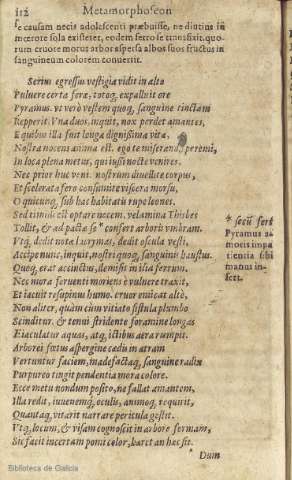 112 Metamorphoseon
se causam necis adolescenti præbuisse, ne diutius in
mœrore sola existeret, eodem ferro se transfixit. quo-
rum cruore morus arbor aspersa albos suos fructus in
sanguineum colorem conuertit.
Serius egressus vestigia vidit in alto
Puluere certa feræ, totoq, expalluit ore
Pyramus. vt verò vestem quoq, sanguine tinctam
Repperit. Vna duos, inquit, nox perdet amantes,
E quibus illa fuit longa dignißima vita.
Nostra nocens anima est. ego te miseranda peremi,
In loca plena metus, qui iussi nocte venires.
Nec prior huc veni. nostrum diuellite corpus,
Et scelerata fero consumite viscera morsu,
O quicunq, sub hac habitatis rupe leones.
Sed timidi est optare necem. velamina Thisbes
Tollit, & ad pactæ se * confert arboris vmbram.
Vtq, dedit notæ lacrymas, dedit oscula vesti,
Accipe nunc, inquit, nostri quoq, sanguinis haustus.
Quoq, erat accinctus, demisit in ilia ferrum.
Nec mora feruenti moriens è vulnere traxit,
Et iacuit resupinus humo. cruor emicat altè,
Non aliter, quàm cùm vitiato fistula plumbo
Scinditur, & tenui stridente foramine longas
Eiaculatur aquas, atq, ictibus aëra rumpit.
Arborei fœtus aspergine cædis in atram
Vertuntur faciem, madefactaq, sanguine radix
Purpureo tingit pendentia mora colore.
Ecce metu nondum posito, ne fallat amantem,
Illa redit, iuuenemq, oculis, animoq, requirit,
Quantaq, vitarit narrare pericula gestit.
Vtq, locum, & visam cognoscit in arbore formam,
Sic facit incertam pomi color, hæret an hæc sit.
* Dum
* secū fert
Pyramus a-
moris impa
tientia sibi
manus in-
fert.
Biblioteca de Galicia